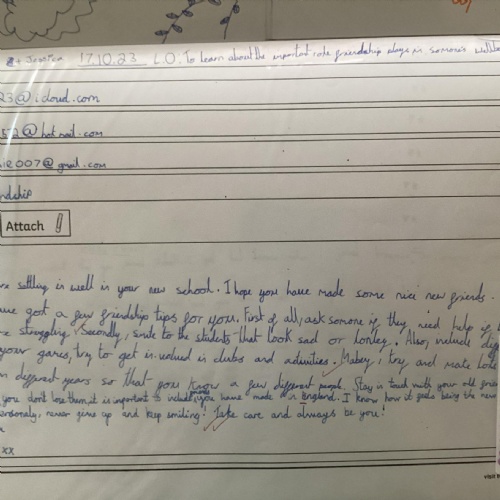 & Jessica 17.10.23 L.O: To learn about the important role friendship plays in somone's wellbe
23@icloud.com
52@hotmail.com
007@gmail.com
ndship
Attach
re settling in well in your new school. I hope you have made some nice new friends.
ave got a few friendship tips for you. First of all, ask somone if they need help if
re struggling. Secondly, smile to the students that look sad or lonley. Also, include
your games, try to get involved in clubs and activities. Mabey, try and make
in different years so that you know a few different people. Stay in touch with your old
you don't lose them, it is important to include you have made in England. I know how it feels being the new
ersonaly, never give up and keep smiling! Take care and always be you!
xx